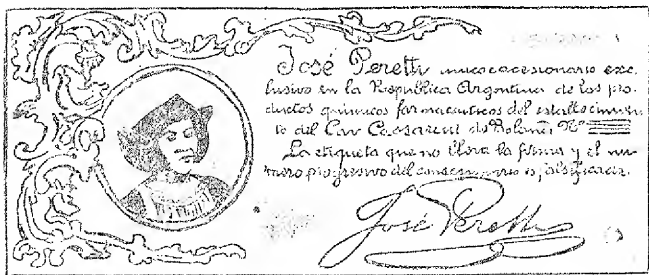 José Peretti unico cocesionario exc-
lusivo en la Republica Argentina de los pro-
ductos quimicos farmaceuticos del establecimien-
to del Cav Cassarini de Bolonia Nº
La etiqueta que no lleva la firma y el nu-
mero progresivo del consecionario es falsificacion.
José Peretti